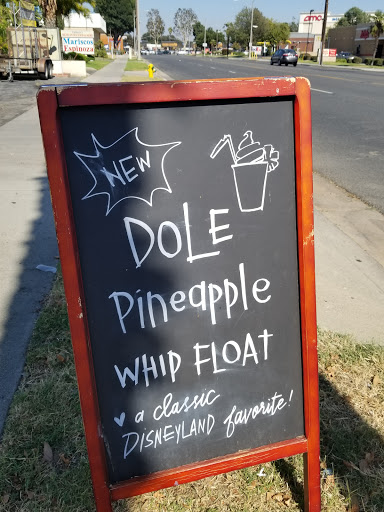 Mariscos
Espinoza
amc
NEW
DOLE
Pineapple
WHIP FLOAT
♥ a classic
DISNEYLAND favorite!